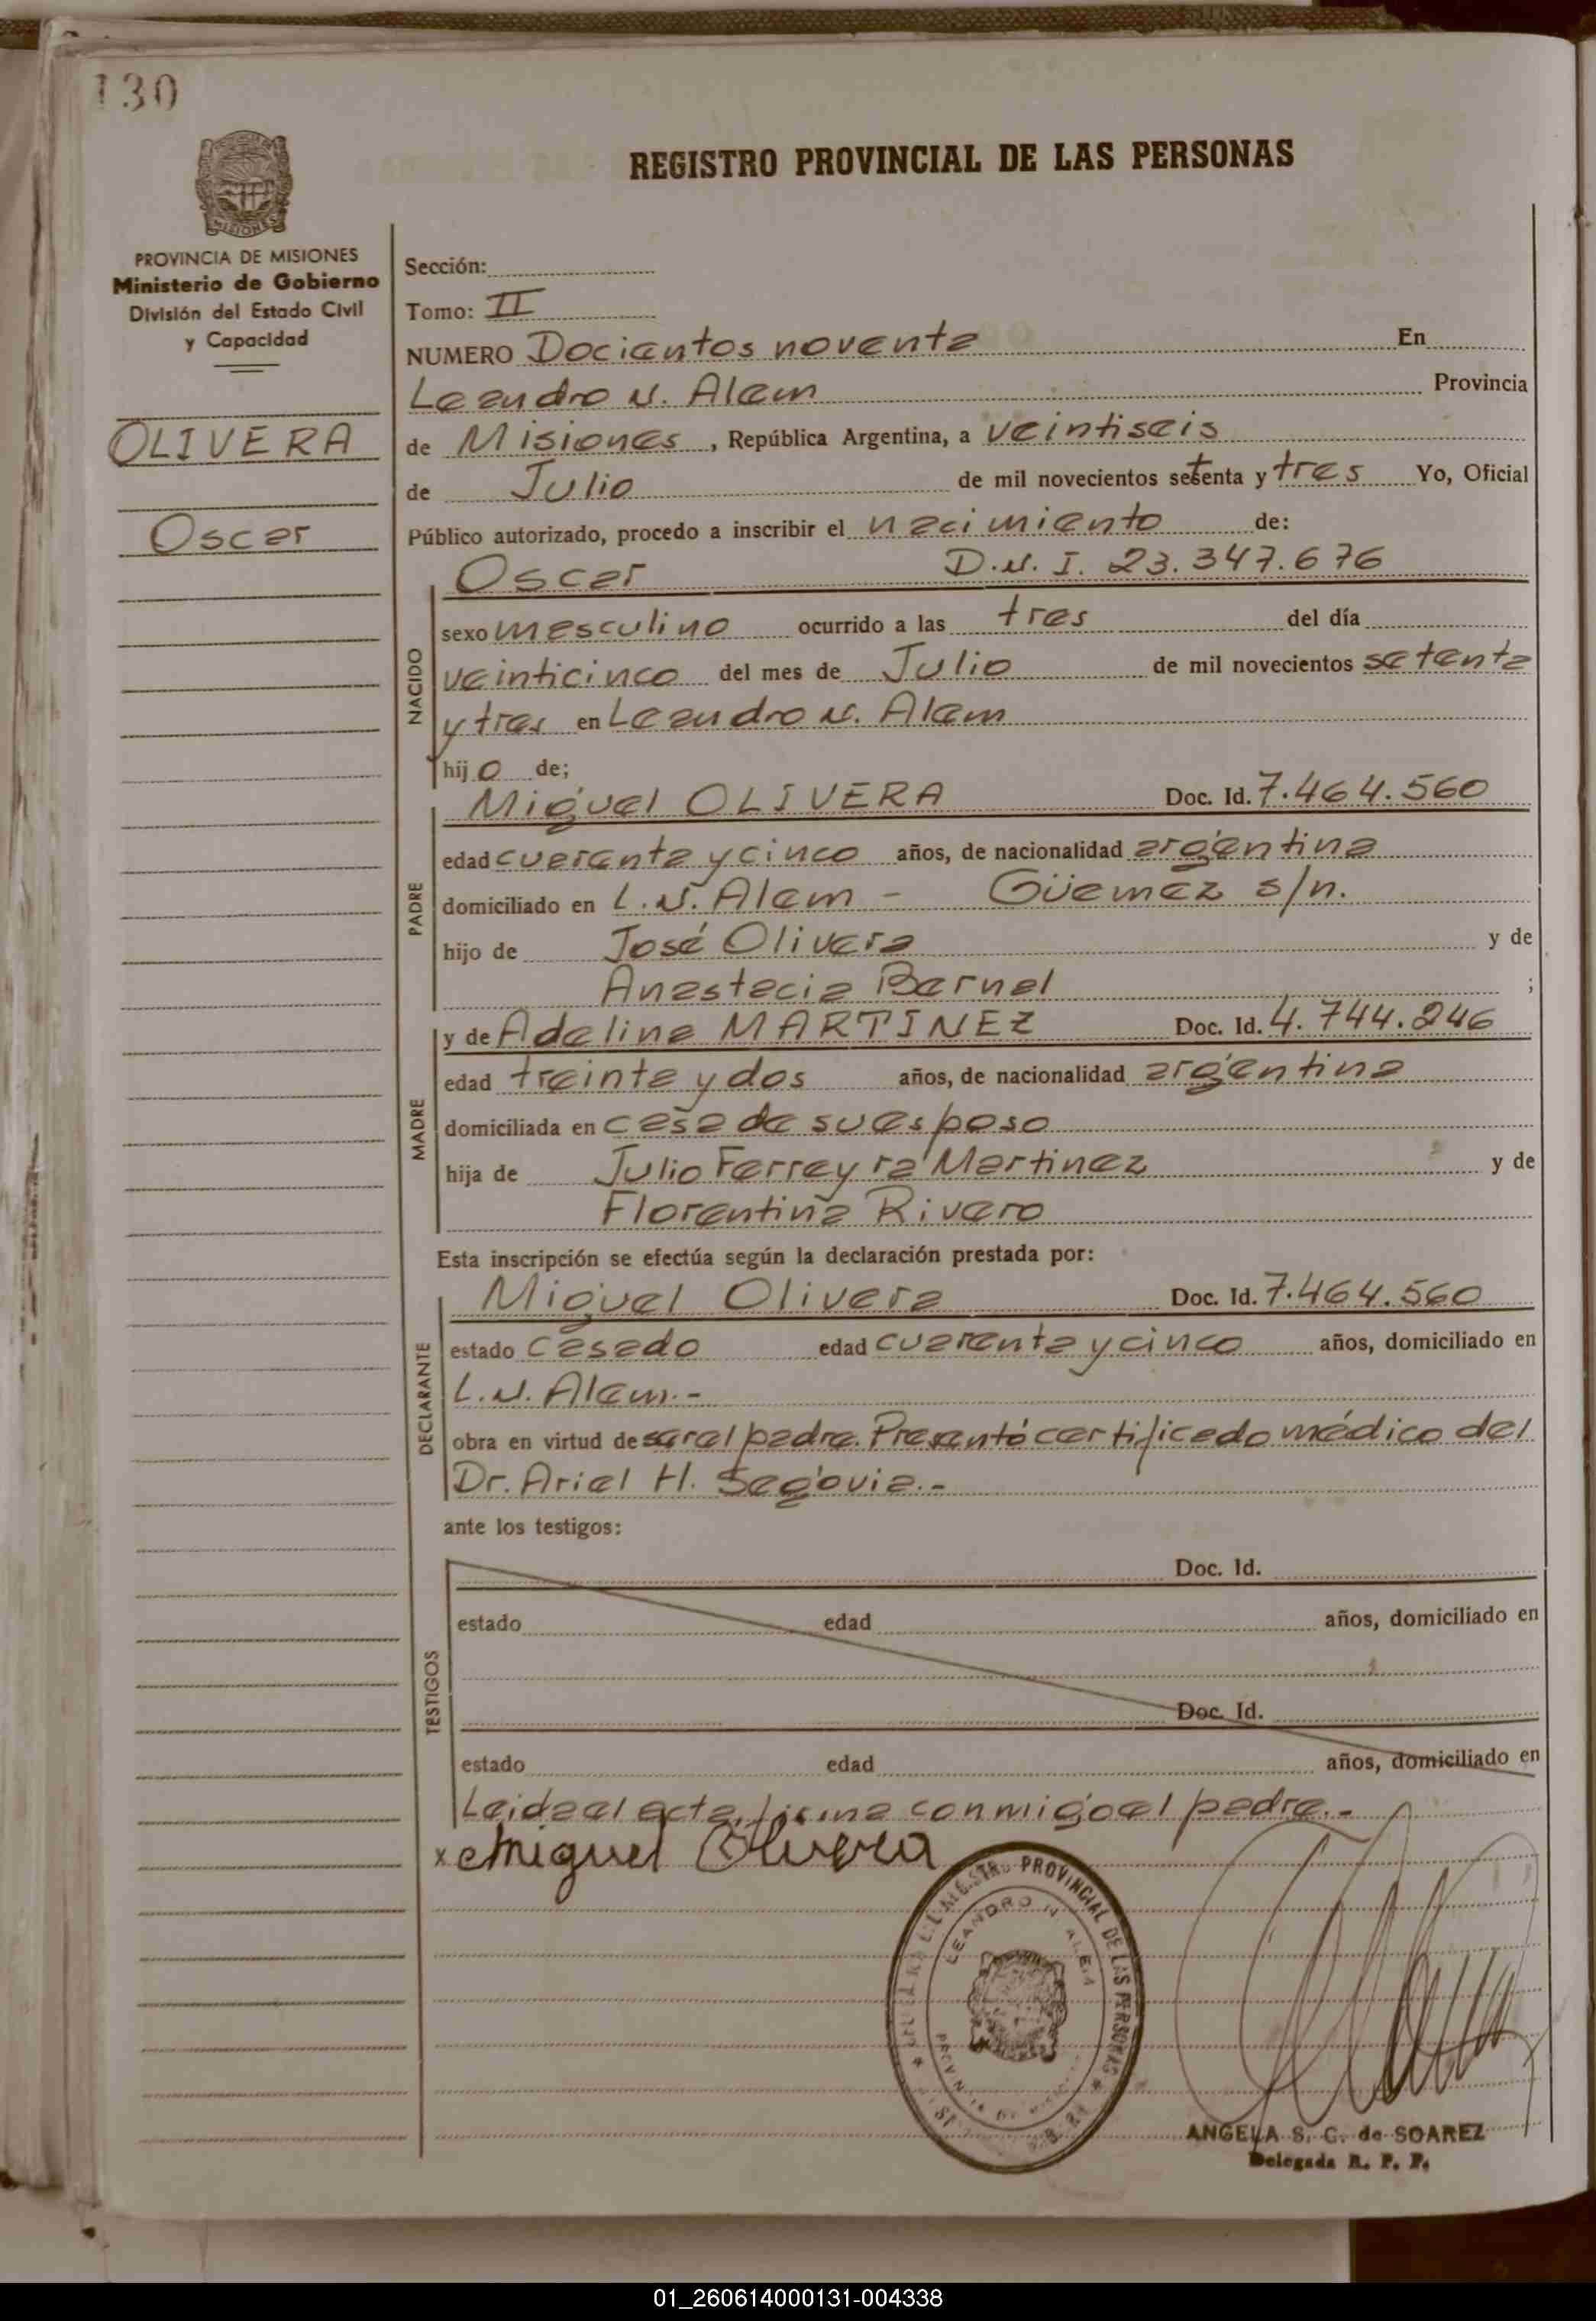 130
REGISTRO PROVINCIAL DE LAS PERSONAS
MISIONES
PROVINCIA DE MISIONES
Ministerio de Gobierno
División del Estado Civil
y Capacidad
OLIVERA
Oscar
Sección:
Tomo: II
NUMERO Docientos noventa En
Leandro N. Alem Provincia
de Misiones, República Argentina, a veintiseis
de Julio de mil novecientos setenta y tres Yo, Oficial
Público autorizado, procedo a inscribir el nacimiento de:
Oscar D.N.I. 23.347.676
NACIDO
sexo masculino ocurrido a las tres del día
veinticinco del mes de Julio de mil novecientos setenta
y tres en Leandro N. Alem
hijo de;
PADRE
Miguel OLIVERA Doc. Id. 7.464.560
edad cuarenta y cinco años, de nacionalidad argentina
domiciliado en L.N. Alem - Güemez s/n.
hijo de José Olivera y de
Anastacia Bernal ;
MADRE
y de Adelina MARTINEZ Doc. Id. 4.744.246
edad treinta y dos años, de nacionalidad argentina
domiciliada en casa de su esposo
hija de Julio Ferreyra Martinez y de
Florentina Rivero
Esta inscripción se efectúa según la declaración prestada por:
DECLARANTE
Miguel Olivera Doc. Id. 7.464.560
estado casado edad cuarenta y cinco años, domiciliado en
L.N. Alem.-
obra en virtud de ser el padre. Presentó certificado médico del
Dr. Ariel H. Segovia.-
ante los testigos:
TESTIGOS
Doc. Id.
estado edad años, domiciliado en
Doc. Id.
estado edad años, domiciliado en
Leida el acta, firma conmigo el padre.-
x Miguel Olivera
PROVINCIAL DE LAS PERSONAS
LEANDRO N. ALEM
ANGELA S. C. de SOAREZ
Delegada R. P. P.
01_260614000131-004338